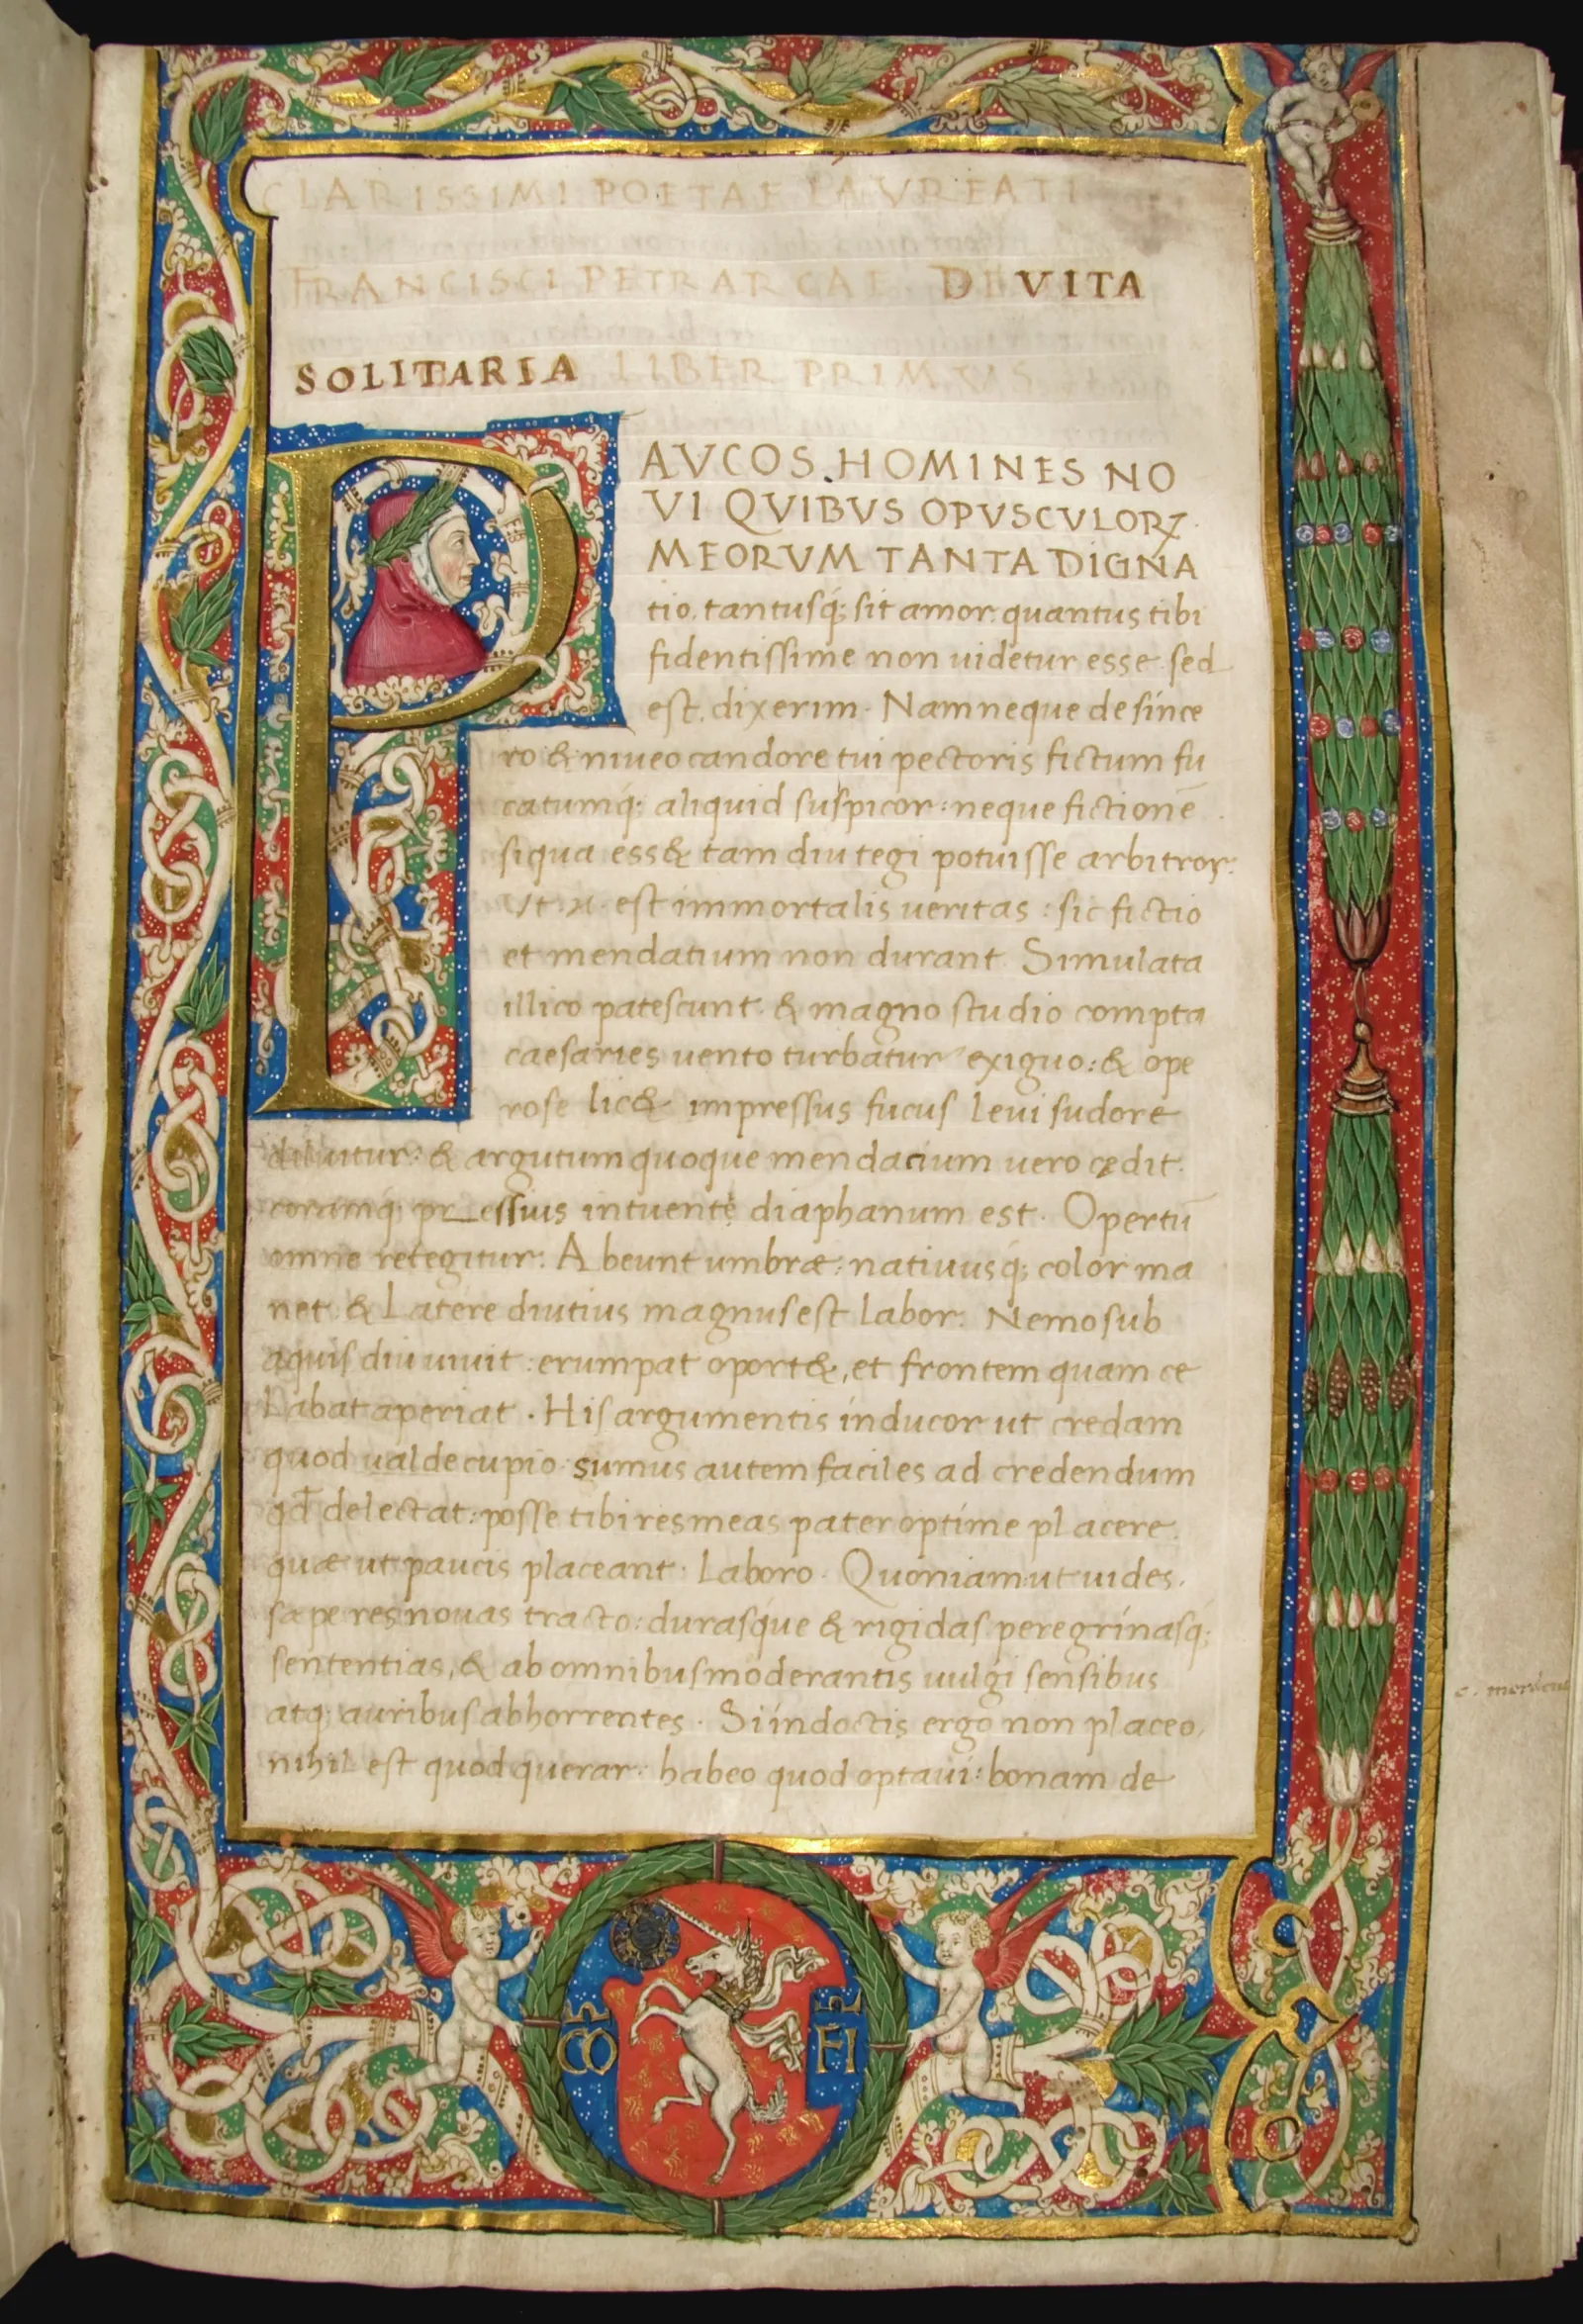 CLARISSIMI POETAE LAVREATI
FRANCISCI PETRARCAE DE VITA
SOLITARIA LIBER PRIMVS
PAVCOS HOMINES NO
VI QVIBVS OPVSCVLORꝜ
MEORVM TANTA DIGNA
tio. tantusq; sit amor: quantus tibi
fidentissime non uidetur esse sed
est. dixerim. Namneque de since
ro & niueo candore tui pectoris fictum fu
catumq; aliquid suspicor: neque fictionē
siqua ess& tam diu tegi potuisse arbitror:
Vt .n. est immortalis ueritas: sic fictio
et mendatium non durant. Simulata
illico patescunt. & magno studio compta
caesaries uento turbatur exiguo: & ope
rose lic& impressus fucus leui sudore
diluitur: & argutum quoque mendacium uero cędit.
coramq; pr essius intuente diaphanum est. Opertū
omne retegitur: Abeunt umbræ: natiuusq; color ma
net. & Latere diutius magnus est labor. Nemo sub
aquis diu uiuit: erumpat oport&, et frontem quam ce
Labat aperiat. His argumentis inducor ut credam
quod ualde cupio sumus autem faciles ad credendum
qd̄ delectat: posse tibi res meas pater optime placere.
quæ ut paucis placeant. Laboro. Quoniam ut uides.
sæpe res nouas tracto: durasque & rigidas peregrinasq;
sententias, & ab omnibus moderantis uulgi sensibus
atq; auribus abhorrentes. Si indoctis ergo non placeo,
nihil est quod querar: habeo quod optaui: bonam de